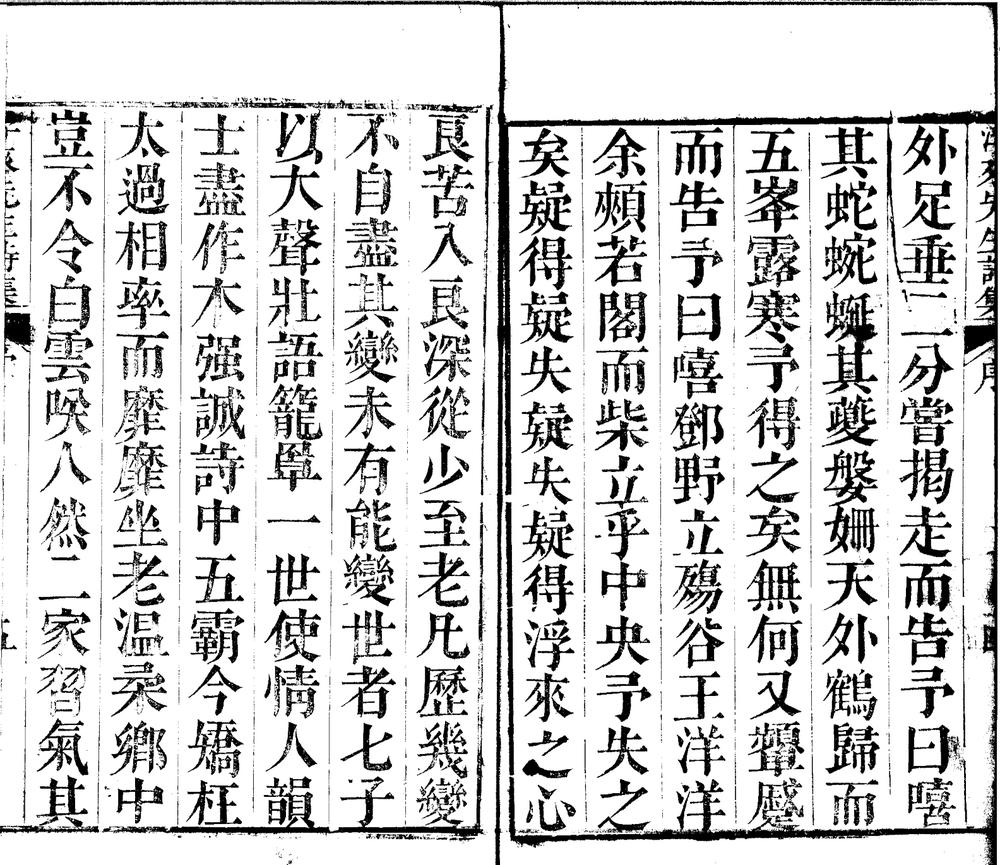 外足垂二分嘗揭走而告予曰嘻
其蛇蜿蜒其夔媻姍天外鶴歸而
五峯露寒予得之矣無何又顰蹙
而告予曰嘻鄧野立殤谷王洋洋
余頰若閣而柴立乎中央予失之
矣疑得疑失疑失疑得浮來之心
良苦入良深從少至老凡歷幾變
不自盡其變未有能變世者七子
以大聲壯語籠罩一世使情人韻
士盡作木强誠詩中五霸今矯枉
太過相率而靡靡坐老溫柔鄉中
豈不令白雲唉人然二家習氣其